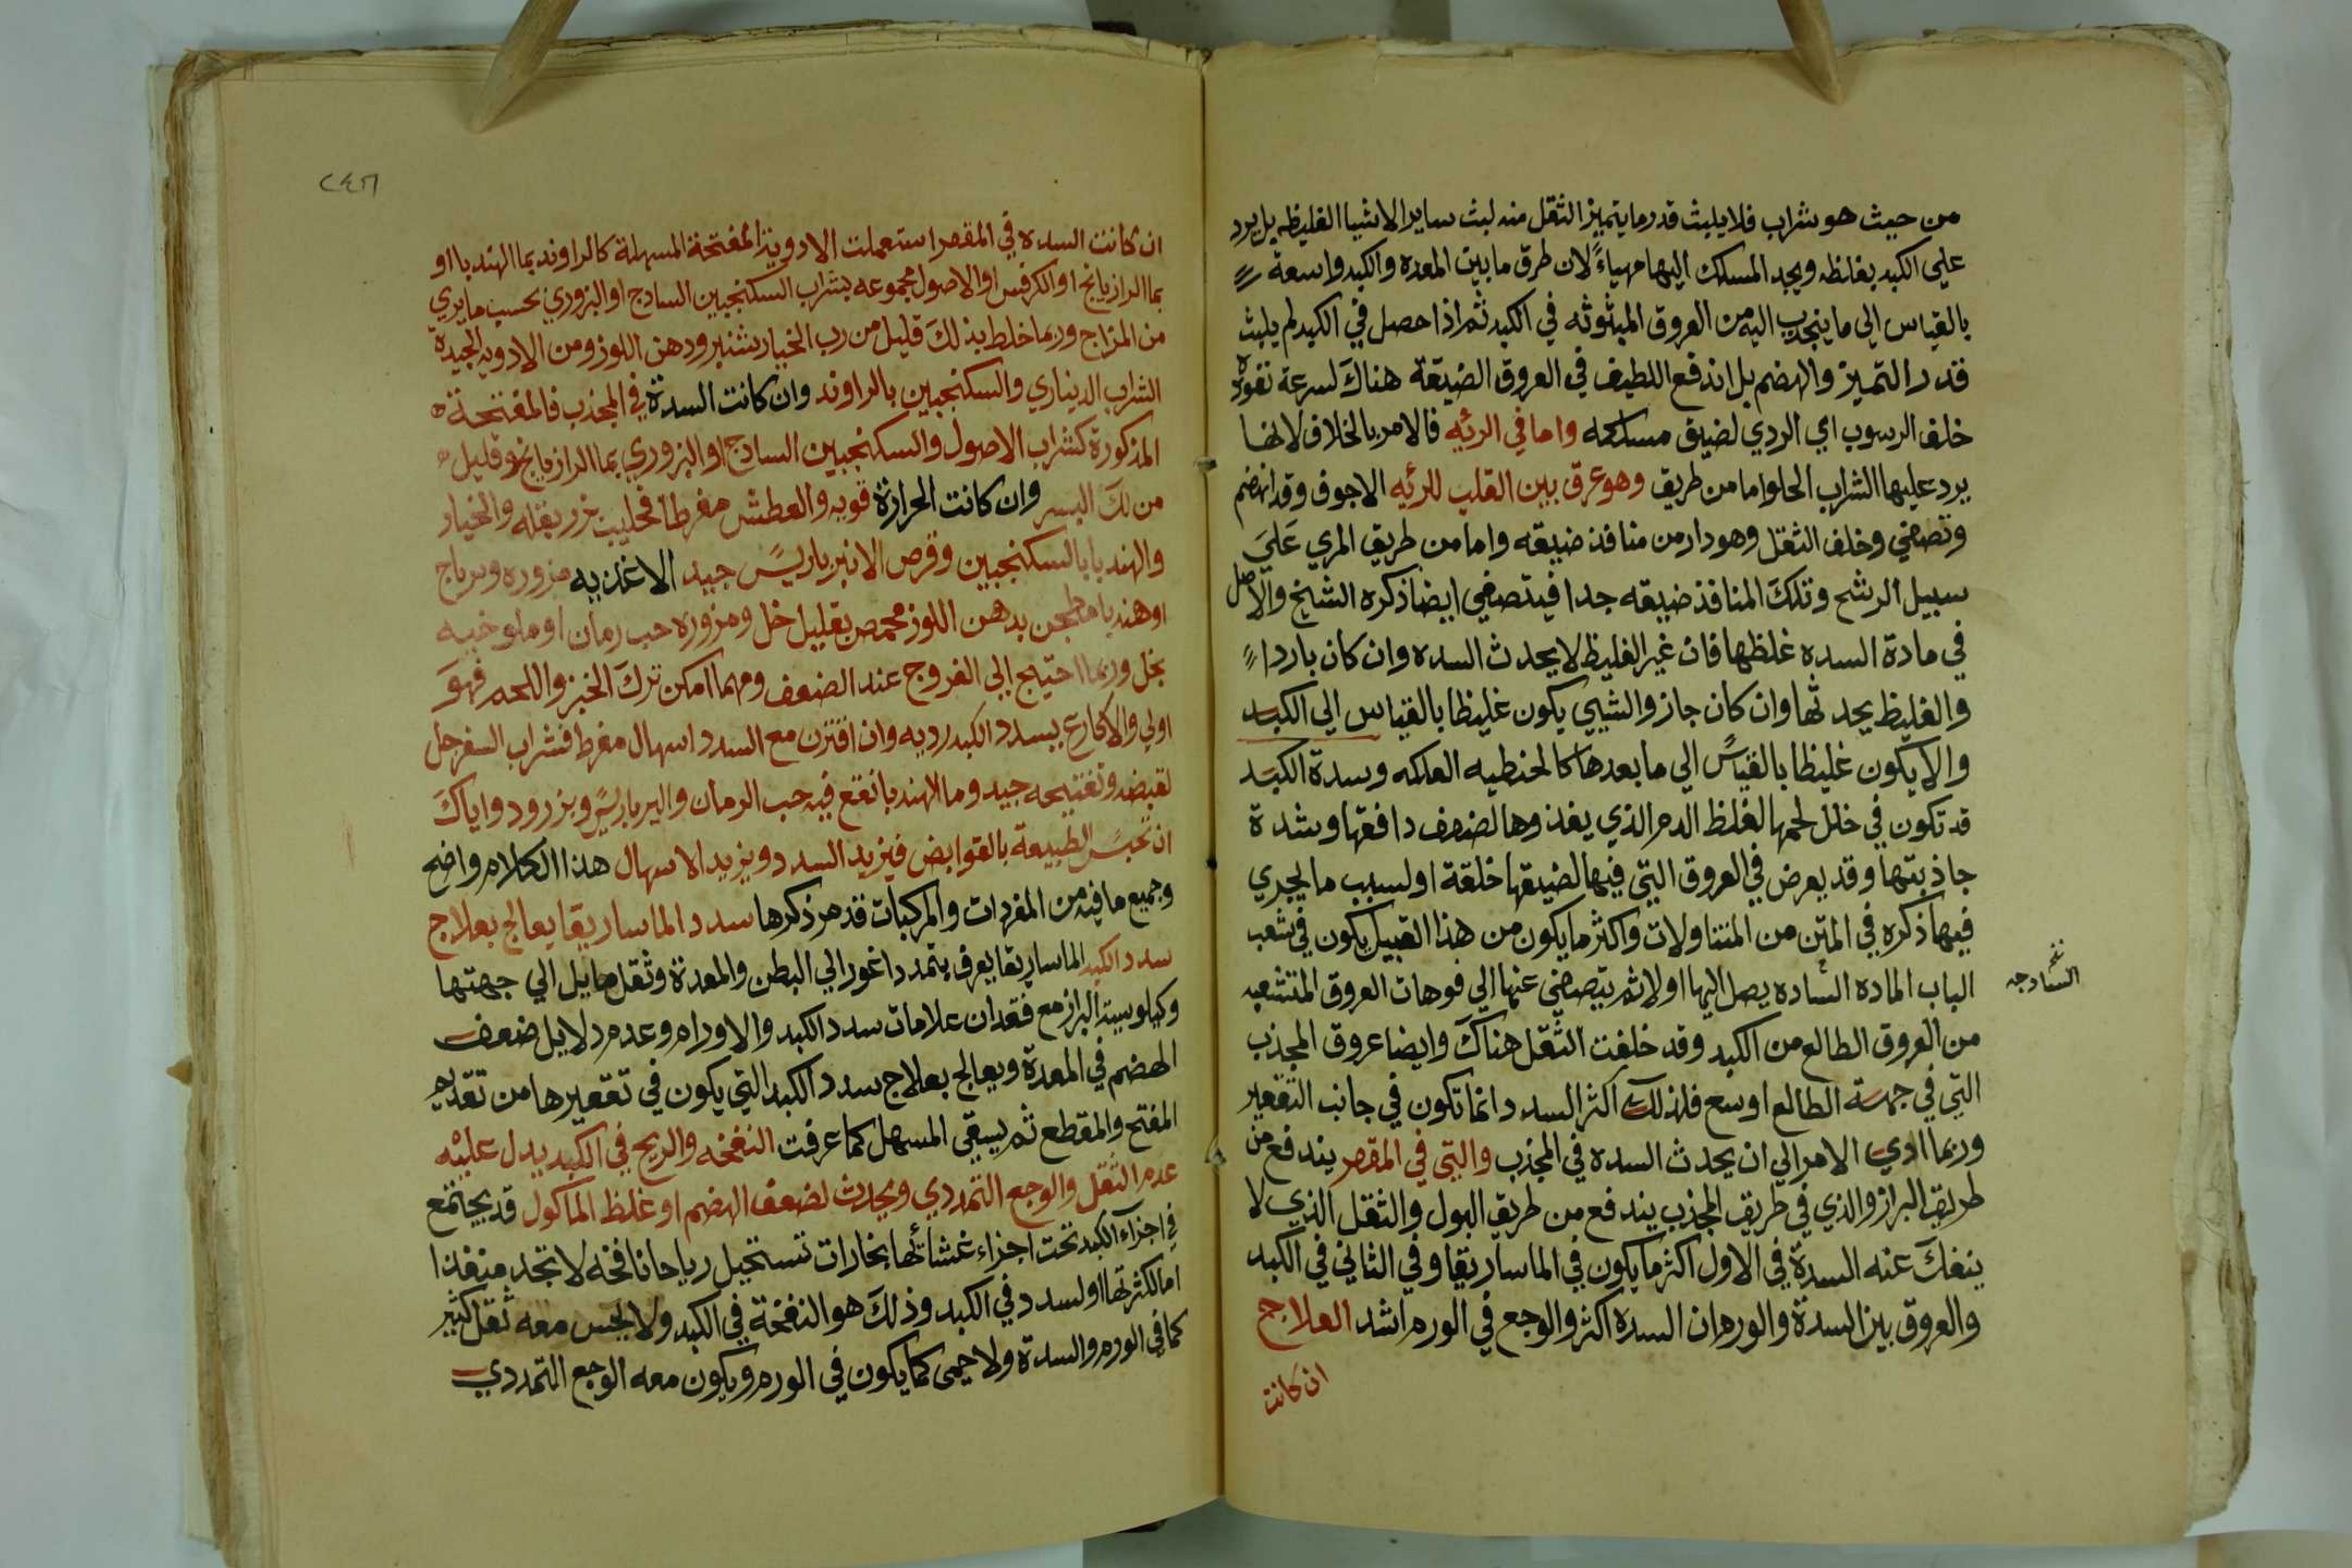 من حيث هو شراب فلا يلبث قدر ما يتميز الثقل منه لبث ساير الاشيا الغليظه بل يرد
علي الكبد بغلظه ويجد المسلك اليها مهياءً لان طرق ما بين المعده والكبد واسعة
بالقياس الي ما ينجذب اليه من العروق المبثوثه في الكبد ثم اذا حصل في الكبد لم يلبث
قدر التميز والهضم بل اندفع اللطيف في العروق الضيقة هناك لسرعة نفوذه
خلف الرسوب اي الردي لضيق مسلكه واما في الرئيه فالامر بالخلاف لانها
يرد عليها الشراب الحلو اما من طريق وهو عرق بين القلب للرئيه الاجوف وقد انهضم
وتصفي وخلف الثقل وهو دار من منافذ ضيقه واما من طريق المري علي
سبيل الرشح وتلك المنافذ ضيقه جدا فيتصفي ايضا ذكره الشيخ والاصل
في مادة السده غلظها فان غير الغليظ لا يحدث السده وان كان باردا
والغليظ يحدثها وان كان جاز والشيي يكون غليظا بالقياس الي الكبد
والا يكون غليظا بالقياس الي ما بعدها كالحنطيه العلكه وسدة الكبد
قد تكون في خلل لحمها لغلظ الدم الذي يغذوها لضعف دافقها وشدة
جاذبتها وقد يعرض في العروق التي فيها لضيقها خلقة او لسبب ما يجري
فيها ذكره في المتن من المتناولات واكثر ما يكون من هذا القبيل يكون في شعب
الباب الماده الساده يصل اليها اولا ثم يتصفي عنها الي فوهات العروق المتشعبه
السادجه
من العروق الطالع من الكبد وقد خلفت الثقل هناك وايضا عروق المحدب
التي في جهة الطالع اوسع فلذلك اكثر السدد انما تكون في جانب التقعير
وربما ادي الامر الي ان يحدث السده في المحدب والتي في المقعر يندفع من
طريق البراز والذي في طريق المحدب يندفع من طريق البول والثقل الذي لا
ينفك عنه السدة في الاول اكثر ما يكون في الماساريقا وفي الثاني في الكبد
والعروق بين السدة والورم ان السده اكثر والوجع في الورم اشد العلاج
ان كانت
٢٤٦
ان كانت السده في المقعر استعملت الادوية المفتحة المسهلة كالراوند بما الهندبا او
بما الرازيانج او الكرفس او الاصول مجموعه بشراب السكنجبين السادج او البزوري بحسب ما يري
من المزاج وربما خلط بذلك قليل من رب الخيار شنبر ودهن اللوز ومن الادويه الجيدة
الشراب الديناري والسكنجبين بالراوند وان كانت السدة في المحدب فالمفتحة
المذكورة كشراب الاصول والسكنجبين السادج او البزوري بما الرازيانج وقليل
من لك اليسر وان كانت الحرارة قويه والعطش مفرطا فحليب بزر بقله والخيار
والهندبا بالسكنجبين وقرص الانبرباريس جيد الاغذيه مزوره وسرباج
او هندبا مطجن بدهن اللوز محمص بقليل خل ومزوره حب رمان او ملوخيه
بخل وربما احتيج الي الفروج عند الضعف ومهما امكن ترك الخبز واللحم فهو
اولي والاكارع بسدد الكبد رديه وان اقترن مع السدد اسهال مفرط فشراب السفرجل
لقبضه وتفتيحه جيد وما الهندبا نقع فيه حب الرمان والبرباريس وبزر ورد واياك
ان تحبس الطبيعة بالقوابض فيزيد السدد ويزيد الاسهال هذا الكلام واضح
وجميع ما فيه من المفردات والمركبات قد مر ذكرها سدد الماساريقا يعالج بعلاج
سدد الكبد الماساريقا يعرف بتمدد اغور الي البطن والمعدة وثقل مايل الي جهتها
وكيلوسية البراز مع فقدان علامات سدد الكبد والاورام وعدم دلايل ضعف
الهضم في المعدة ويعالج بعلاج سدد الكبد التي يكون في تقعيرها من تقديم
المفتح والمقطع ثم يسقي المسهل كما عرفت النفخه والريح في الكبد يدل عليه
عدم الثقل والوجع التمددي ويحدث لضعف الهضم او غلظ الماكول قد يجتمع
في اجزآء الكبد تحت اجزاء غشائها بخارات تستحيل رياحا نافخه لا تجد منفذا
اما لكثرتها او لسدد في الكبد وذلك هو النفخة في الكبد ولا يحس معه ثقل كثير
كما في الورم والسدة ولا حمى كما يكون في الورم ويكون معه الوجع التمددي